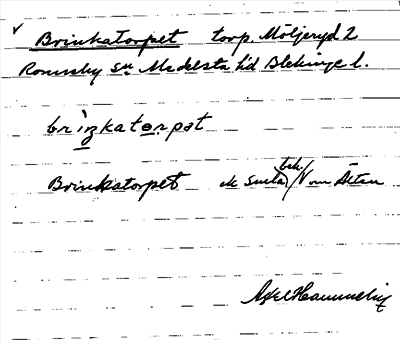 √ Brinkatorpet torp. Möljeryd 2
Ronneby sn Medelsta hd Blekinge l.
brìŋkatorpət
Brinkatorpet
Axel Hammelin